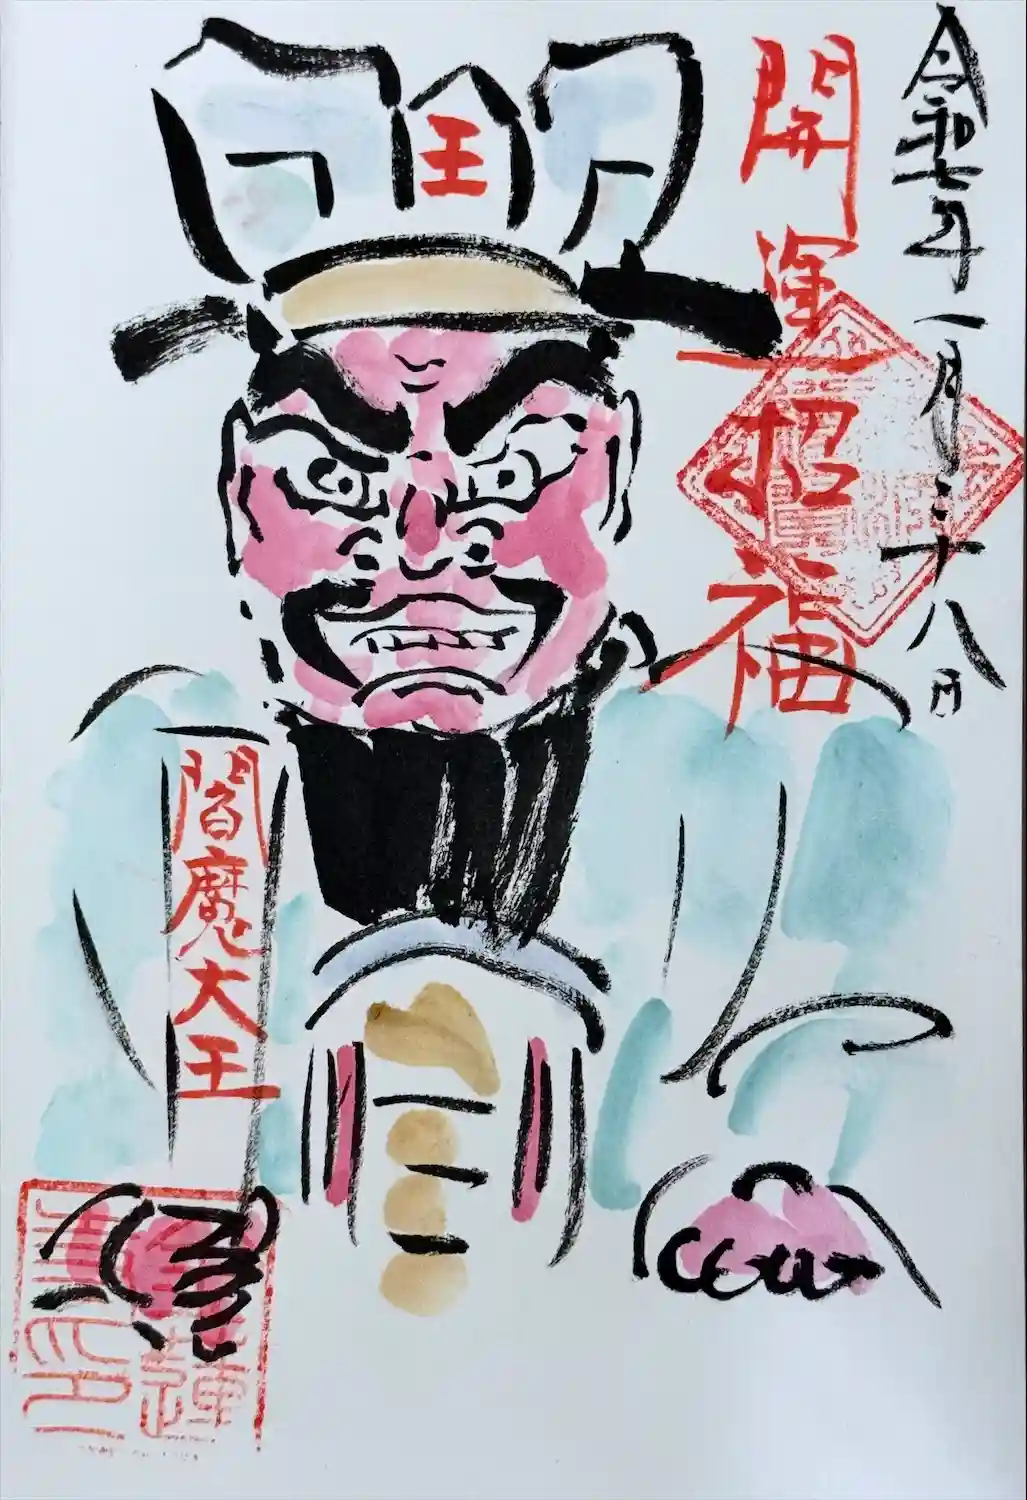 令和七年一月二十八日
開運招福
王
閻魔大王